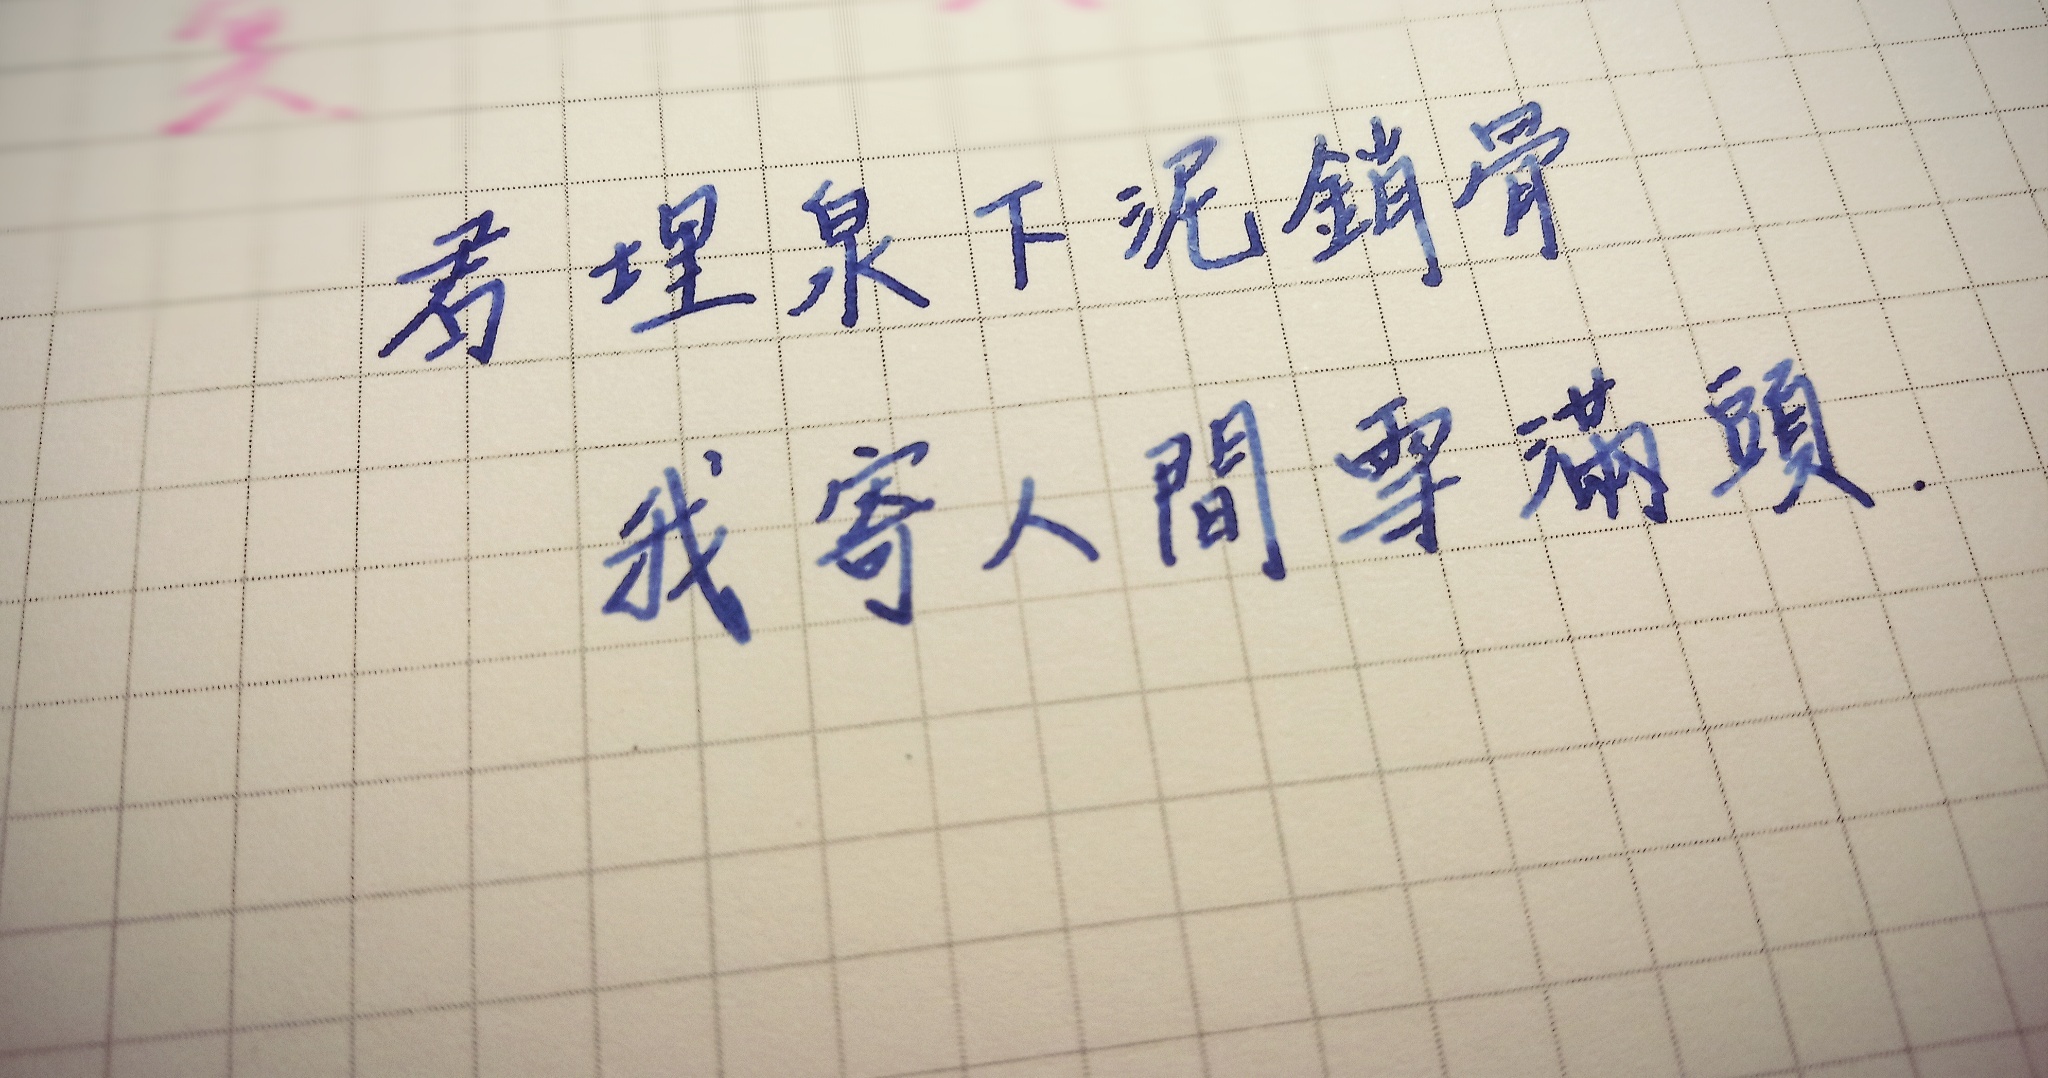 君埋泉下泥銷骨
我寄人間雪滿頭.